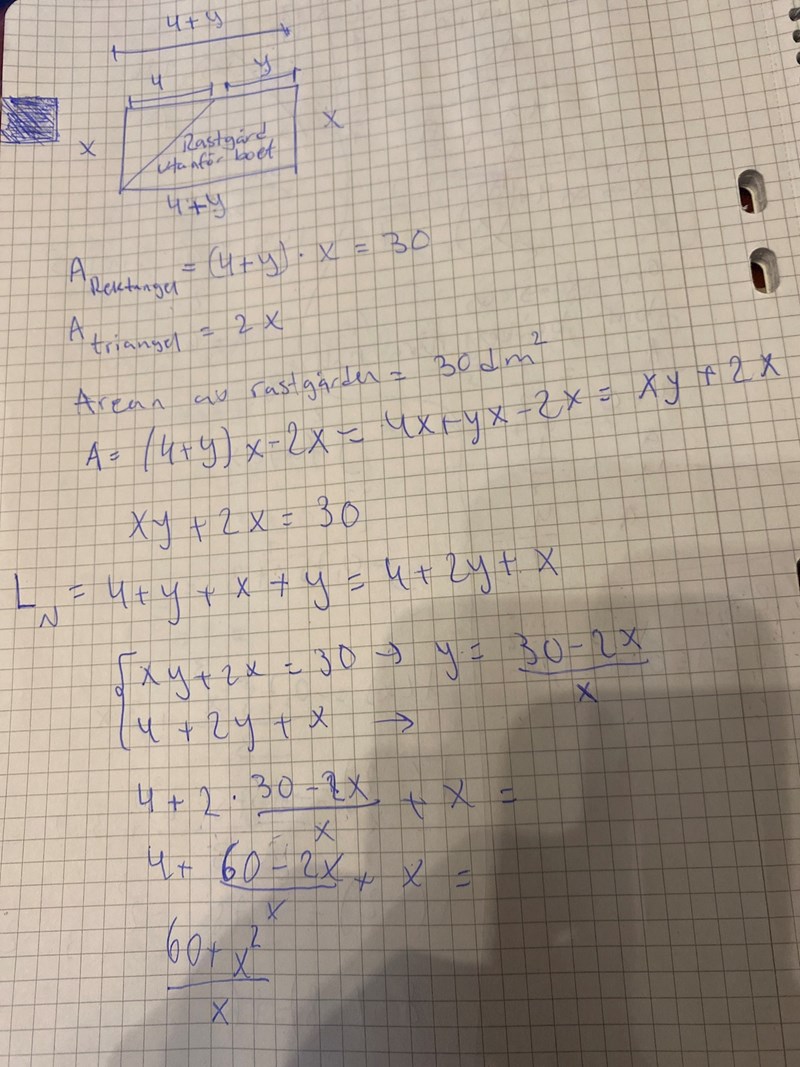 4+y
4 y
x Rastgård x
utanför boet
4+y
A Rektangel = (4+y) · x = 30
A triangel = 2x
Arean av rastgården = 30 dm²
A = (4+y) x - 2x = 4x + yx - 2x = xy + 2x
xy + 2x = 30
L_N = 4 + y + x + y = 4 + 2y + x
{ xy + 2x = 30 → y = (30 - 2x)/x
4 + 2y + x →
4 + 2 · (30 - 2x)/x + x =
4 + (60 - 2x)/x + x =
(60 + x²)/x